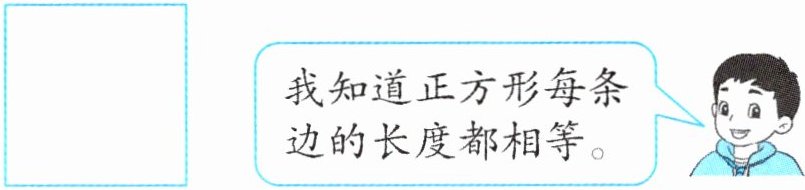 我知道正方形每条
边的长度都相等。